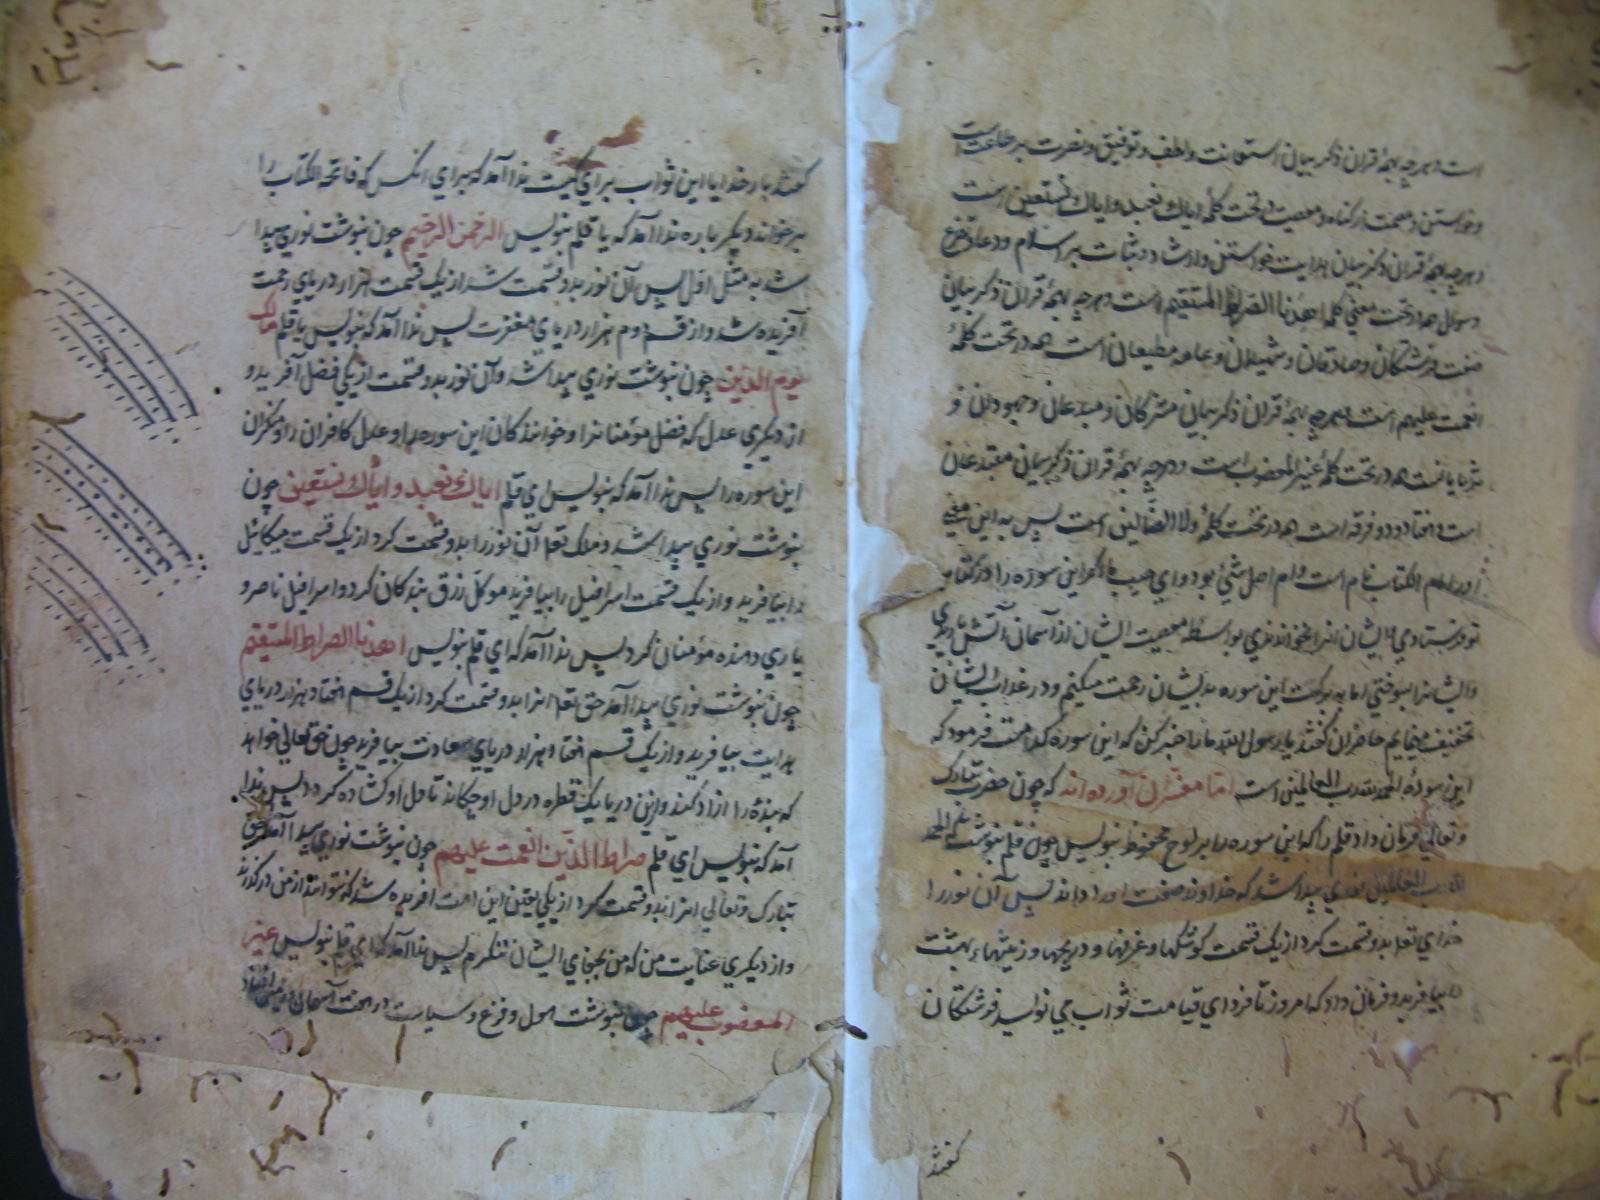 است و هر چه بهمۀ قران ذکر بیان استعانت ولطف وتوفیق ونصرت بر طاعت است
وخواستن وعصمت از کناه ومعصیت در تحت کلمۀ ایاک نعبد وایاک نستعین است
وهر چه بهمۀ قران ذکر بیان هدایت خواستن وارشاد وثبات بر اسلام ودعا وتضرع
وسوال همه در تحت معنی کلمۀ اهدنا الصراط المستقیم است وهر چه بهمۀ قران ذکر بیان
صفت فرشتکان وصادقان وشهیدان وعامه مطیعان است همه در تحت کلمۀ
انعمت علیهم است وهر چه بهمۀ قران ذکر بیان مشرکان ومبدعان وجهودان و
همه در تحت کلمۀ غیر المغضوب است وهر چه بهمۀ قران ذکر بیان مبتدعان
است وهفتاد ودو فرقه است همه در تحت کلمۀ ولا الضالین است پس به این معنی
اورا ام الکتاب نام است وام اصل شیء بود وای حبیب ما اکر این سوره را در کتاب
تو نفرستادی بواسطۀ معصیت ایشان از آسمان آتش
وایشانرا بسوختی اما به برکت این سوره بدیشان رحمت میکنیم ودر عذاب ایشان
تخفیف مینمایم حاضران کفتند یا رسول الله مارا خبر کن که این سوره کدامست فرمود که
این سورۀ الحمد لله رب العالمین است اما مفسران آورده اند که چون حضرت تبارک
وتعالی فرمان داد قلم را که این سوره را بر لوح محفوظ بنویس چون قلم بنوشت که الحمد
لله رب العالمین نوری پیدا شد که خداوند صفت اورا داند پس آن نور را
خدای تعا بدو قسمت کرد از یک قسمت کوشکها وغرفها ودریچها وزمینهاء بهشت
بیافرید وفرمان داد که امروز تا فردای قیامت ثواب می نویسد فرشتکان
کفتند
کفتند بار خدایا این ثواب برای کیست ندا آمد که برای انکس که فاتحه الکتاب را
بر خواند دیکر باره ندا آمد که یا قلم بنویس الرحمن الرحیم چون بنوشت نوری پیدا
شد به مثل اول پس آن نور بدو قسمت شد از یک قسمت هزار دریای رحمت
آفریده شد واز قسم دوم هزار دریای مغفرت پس ندا آمد که بنویس یا قلم مالک
یوم الدین چون بنوشت نوری پیدا شد وآن نور بدو قسمت از یکی فضل آفرید و
از دیکری عدل که فضل مؤمنانرا وخوانندکان این سوره را وعدل کافران را ومنکران
این سوره را پس ندا آمد که بنویس ای قلم ایاک نعبد وایاک نستعین چون
بنوشت نوری پیدا شد وملک تعا آن نور را بدو قسمت کرد از یک قسمت میکائیل
را بیافرید واز یک قسمت اسرافیل را بیافرید موکل رزق بندکان کرد واسرافیل ناصر و
یاری دهنده مؤمنان کرد پس ندا آمد که ای قلم بنویس اهدنا الصراط المستقیم
چون بنوشت نوری پیدا آمد حق تعا انرا بدو قسمت کرد از یک قسم هفتاد هزار دریای
هدایت بیافرید واز یک قسم هفتاد هزار دریای سعادت بیافرید چون حق تعالی خواهد
که بندۀ را ازاد کند وازین دریا یک قطره در دل او چکاند تا دل او کشاده کردد پس ندا
آمد که بنویس ای قلم صراط الذین انعمت علیهم چون بنوشت نوری پیدا آمد حق
تبارک وتعالی انرا بدو قسمت کرد از یکی یقین این امت افریده شد که نتوانند از من درکذرند
واز دیکری عنایت من که من بجفای ایشان ننکرم پس ندا آمد که ای قلم بنویس غیر
المغضوب علیهم چون بنوشت هول وفزع وسیاست در هفت آسمان